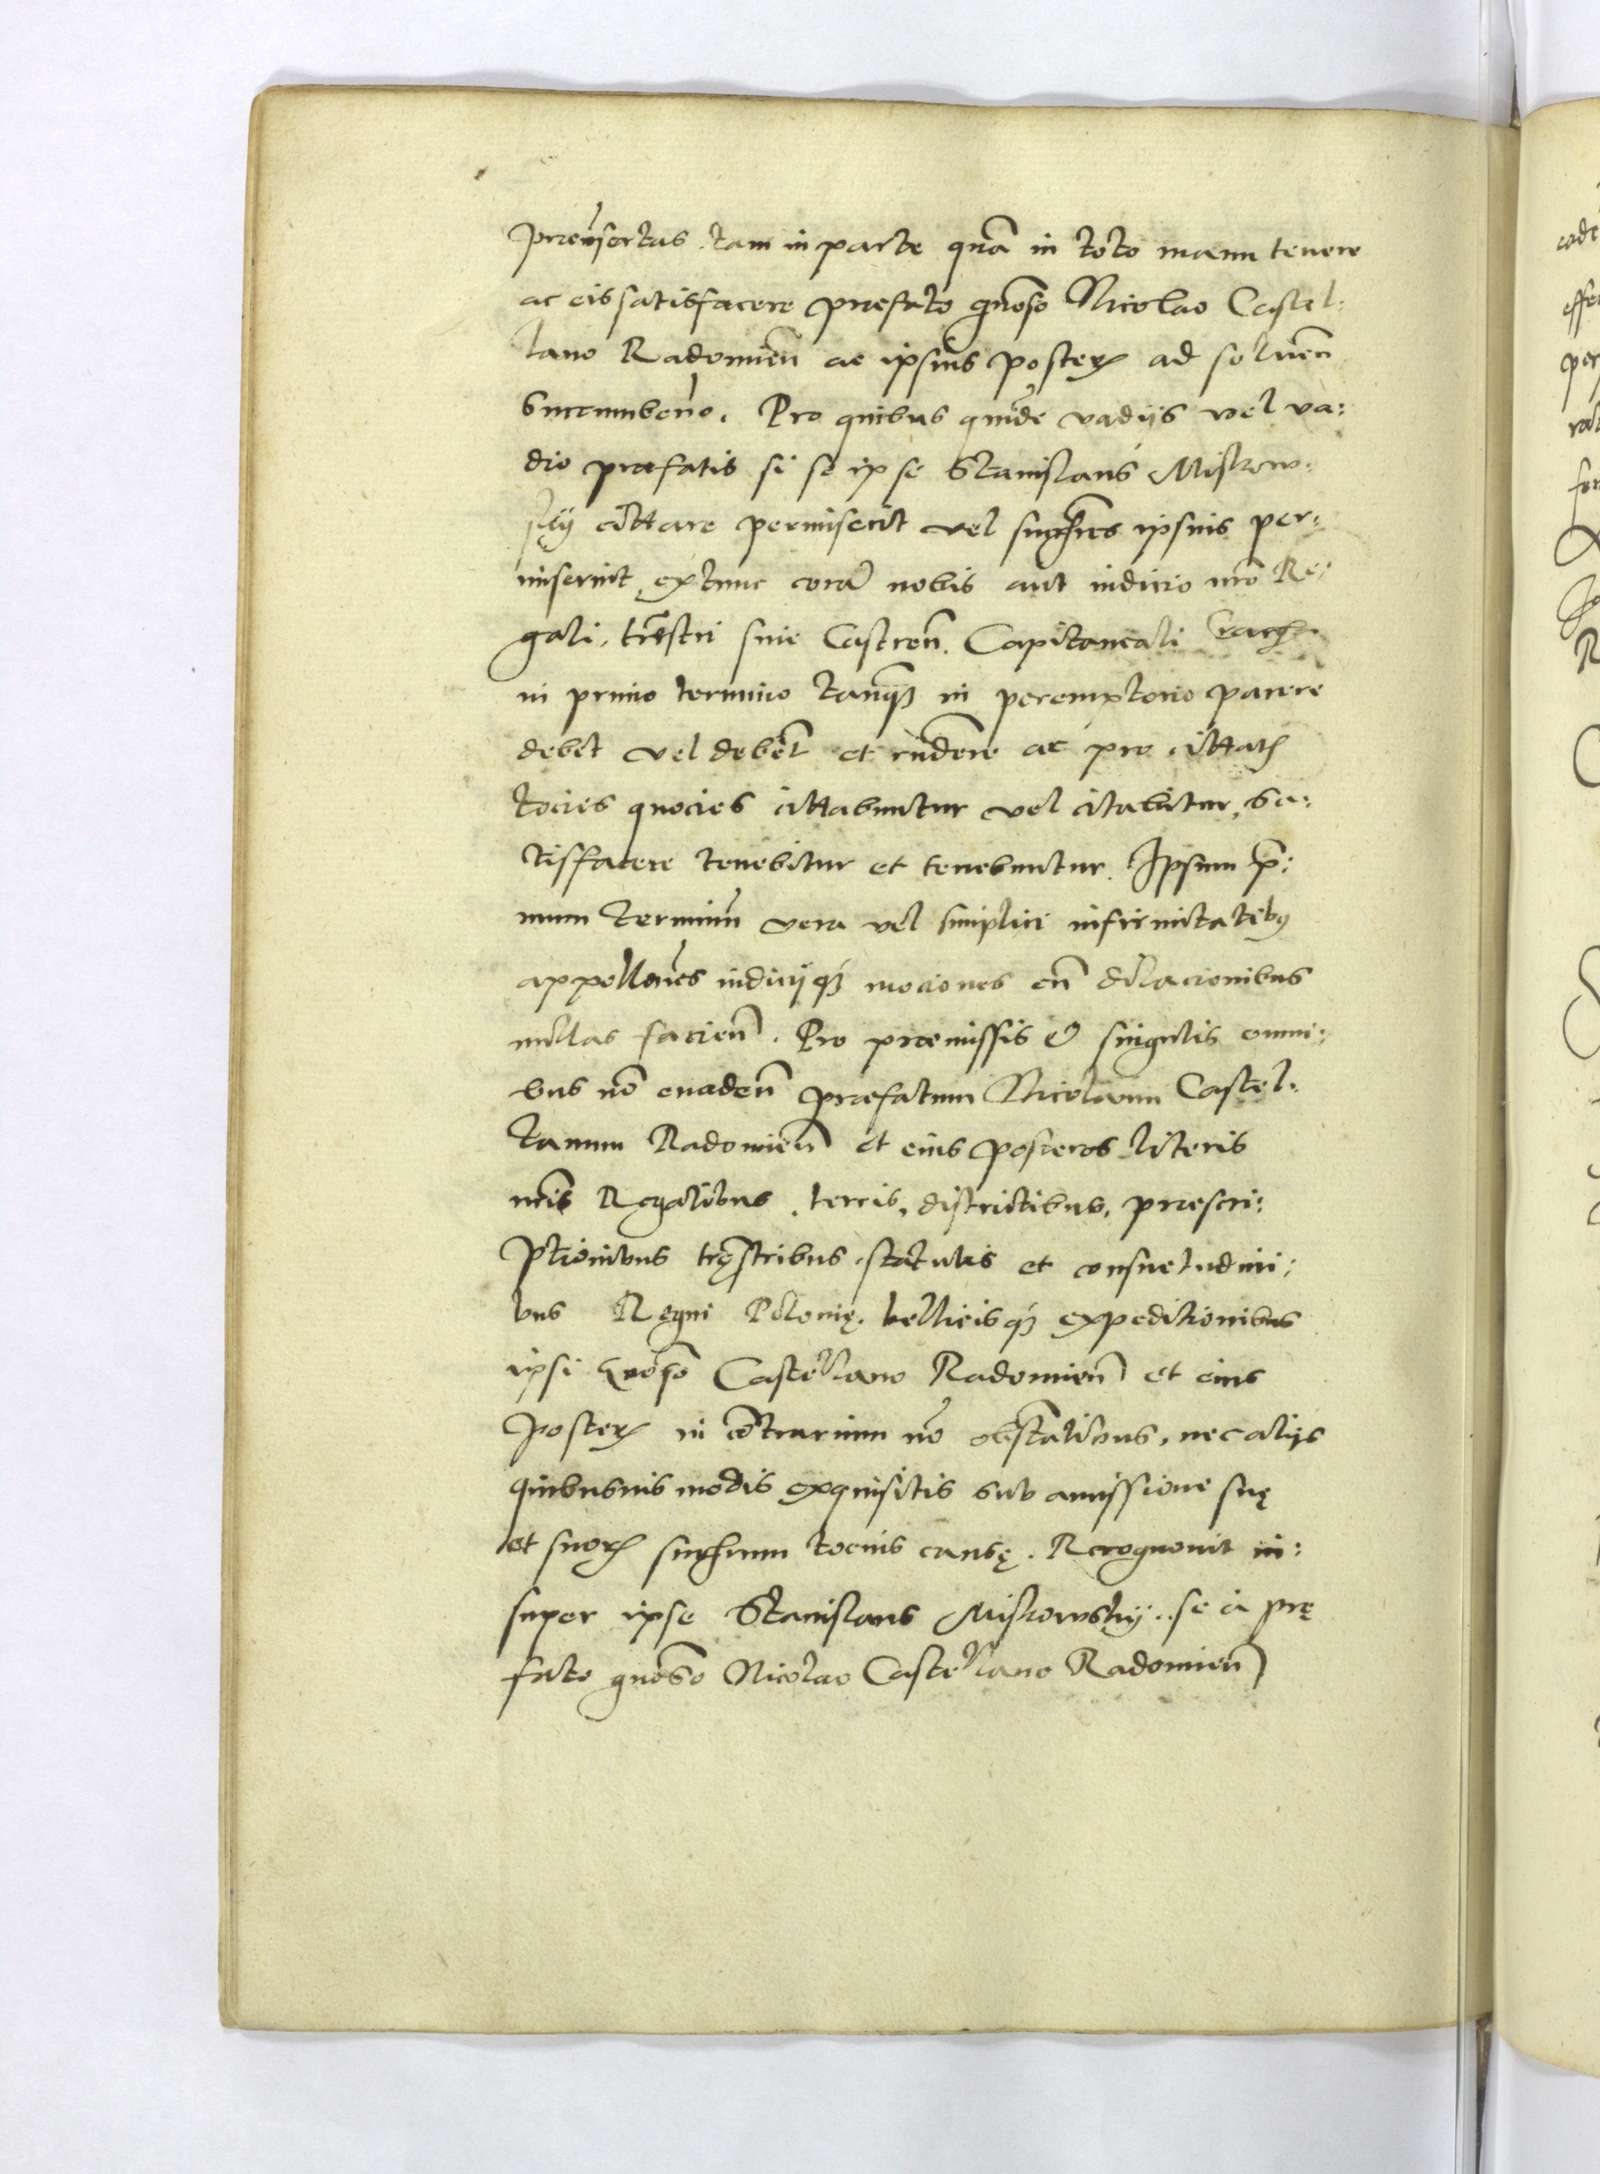 praeinsertas tam in parte quã in toto manu tenere
ac eis satisfacere praefato gñoso Nicolao Castel:
lano Radomieñ ac ipsius posteꝝ ad solueñ
succumbeñ. Pro quibus quidẽ vadijs vel va:
dio praefatis si se ipse Stanislaus Miskow:
skij cittare permiserit vel succhres ipsius per:
miserint extunc corã nobis aut iudicio nrõ Re:
gali, trestri siue Castreñ. Capitaneali
in primo termino tanqꝫ in peremptorio parere
debet vel debẽt et rñdere ac pro cittatꝭ
tocies quocies cittabuntur vel citabitur, sa:
tisfacere tenebitur et tenebuntur. Ipsum p̃:
mum terminũ vera vel simplici infirmitatibꝰ
appellanẽs iudicijqꝫ mociones cũ dilacionibus
nullas facieñ. Pro praemissis & singulis omni:
bus nõ euadeñ praefatum Nicolaum Castel:
lanum Radomieñ et eius posteros literis
nrĩs Regalibus, terris, districtibus, praescri:
ptionibus trẽstribus, statutis et consuetudini:
bus Regni Polonię, bellicisqꝫ expeditionibus
ipsi gñoso Castellano Radomieñ et eius
posteꝝ in cõtrarium nõ obstãtibus, nec alijs
quibusuis modis exquisitis sub amissione suę
et suoꝝ succhrum tocius causę. Recognouit in:
super ipse Stanislaus Miskowskij se à prę
fato gñoso Nicolao Castellano Radomieñ